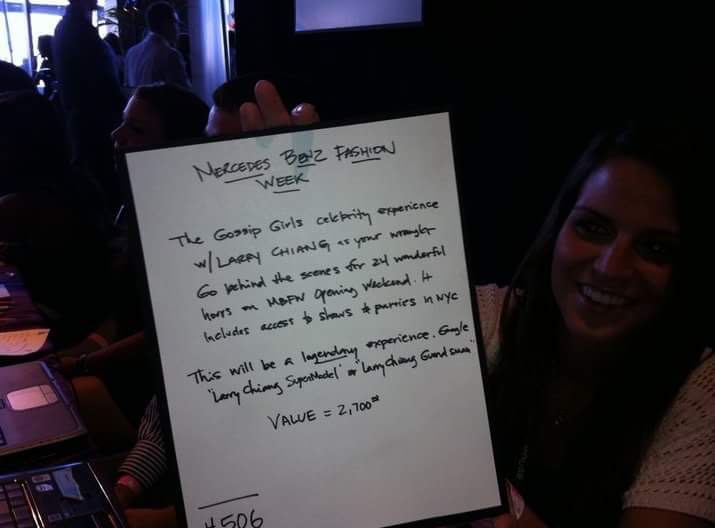 MERCEDES BENZ FASHION
WEEK
The Gossip Girls celebrity experience
w/ LARRY CHIANG as your wrangler
Go behind the scenes for 24 wonderful
hours on MBFW opening weekend. It
includes access to shows & parties in NYC
This will be a legendary experience. Google
"Larry Chiang SuperModel" or "Larry Chiang
VALUE = 2,700
4506